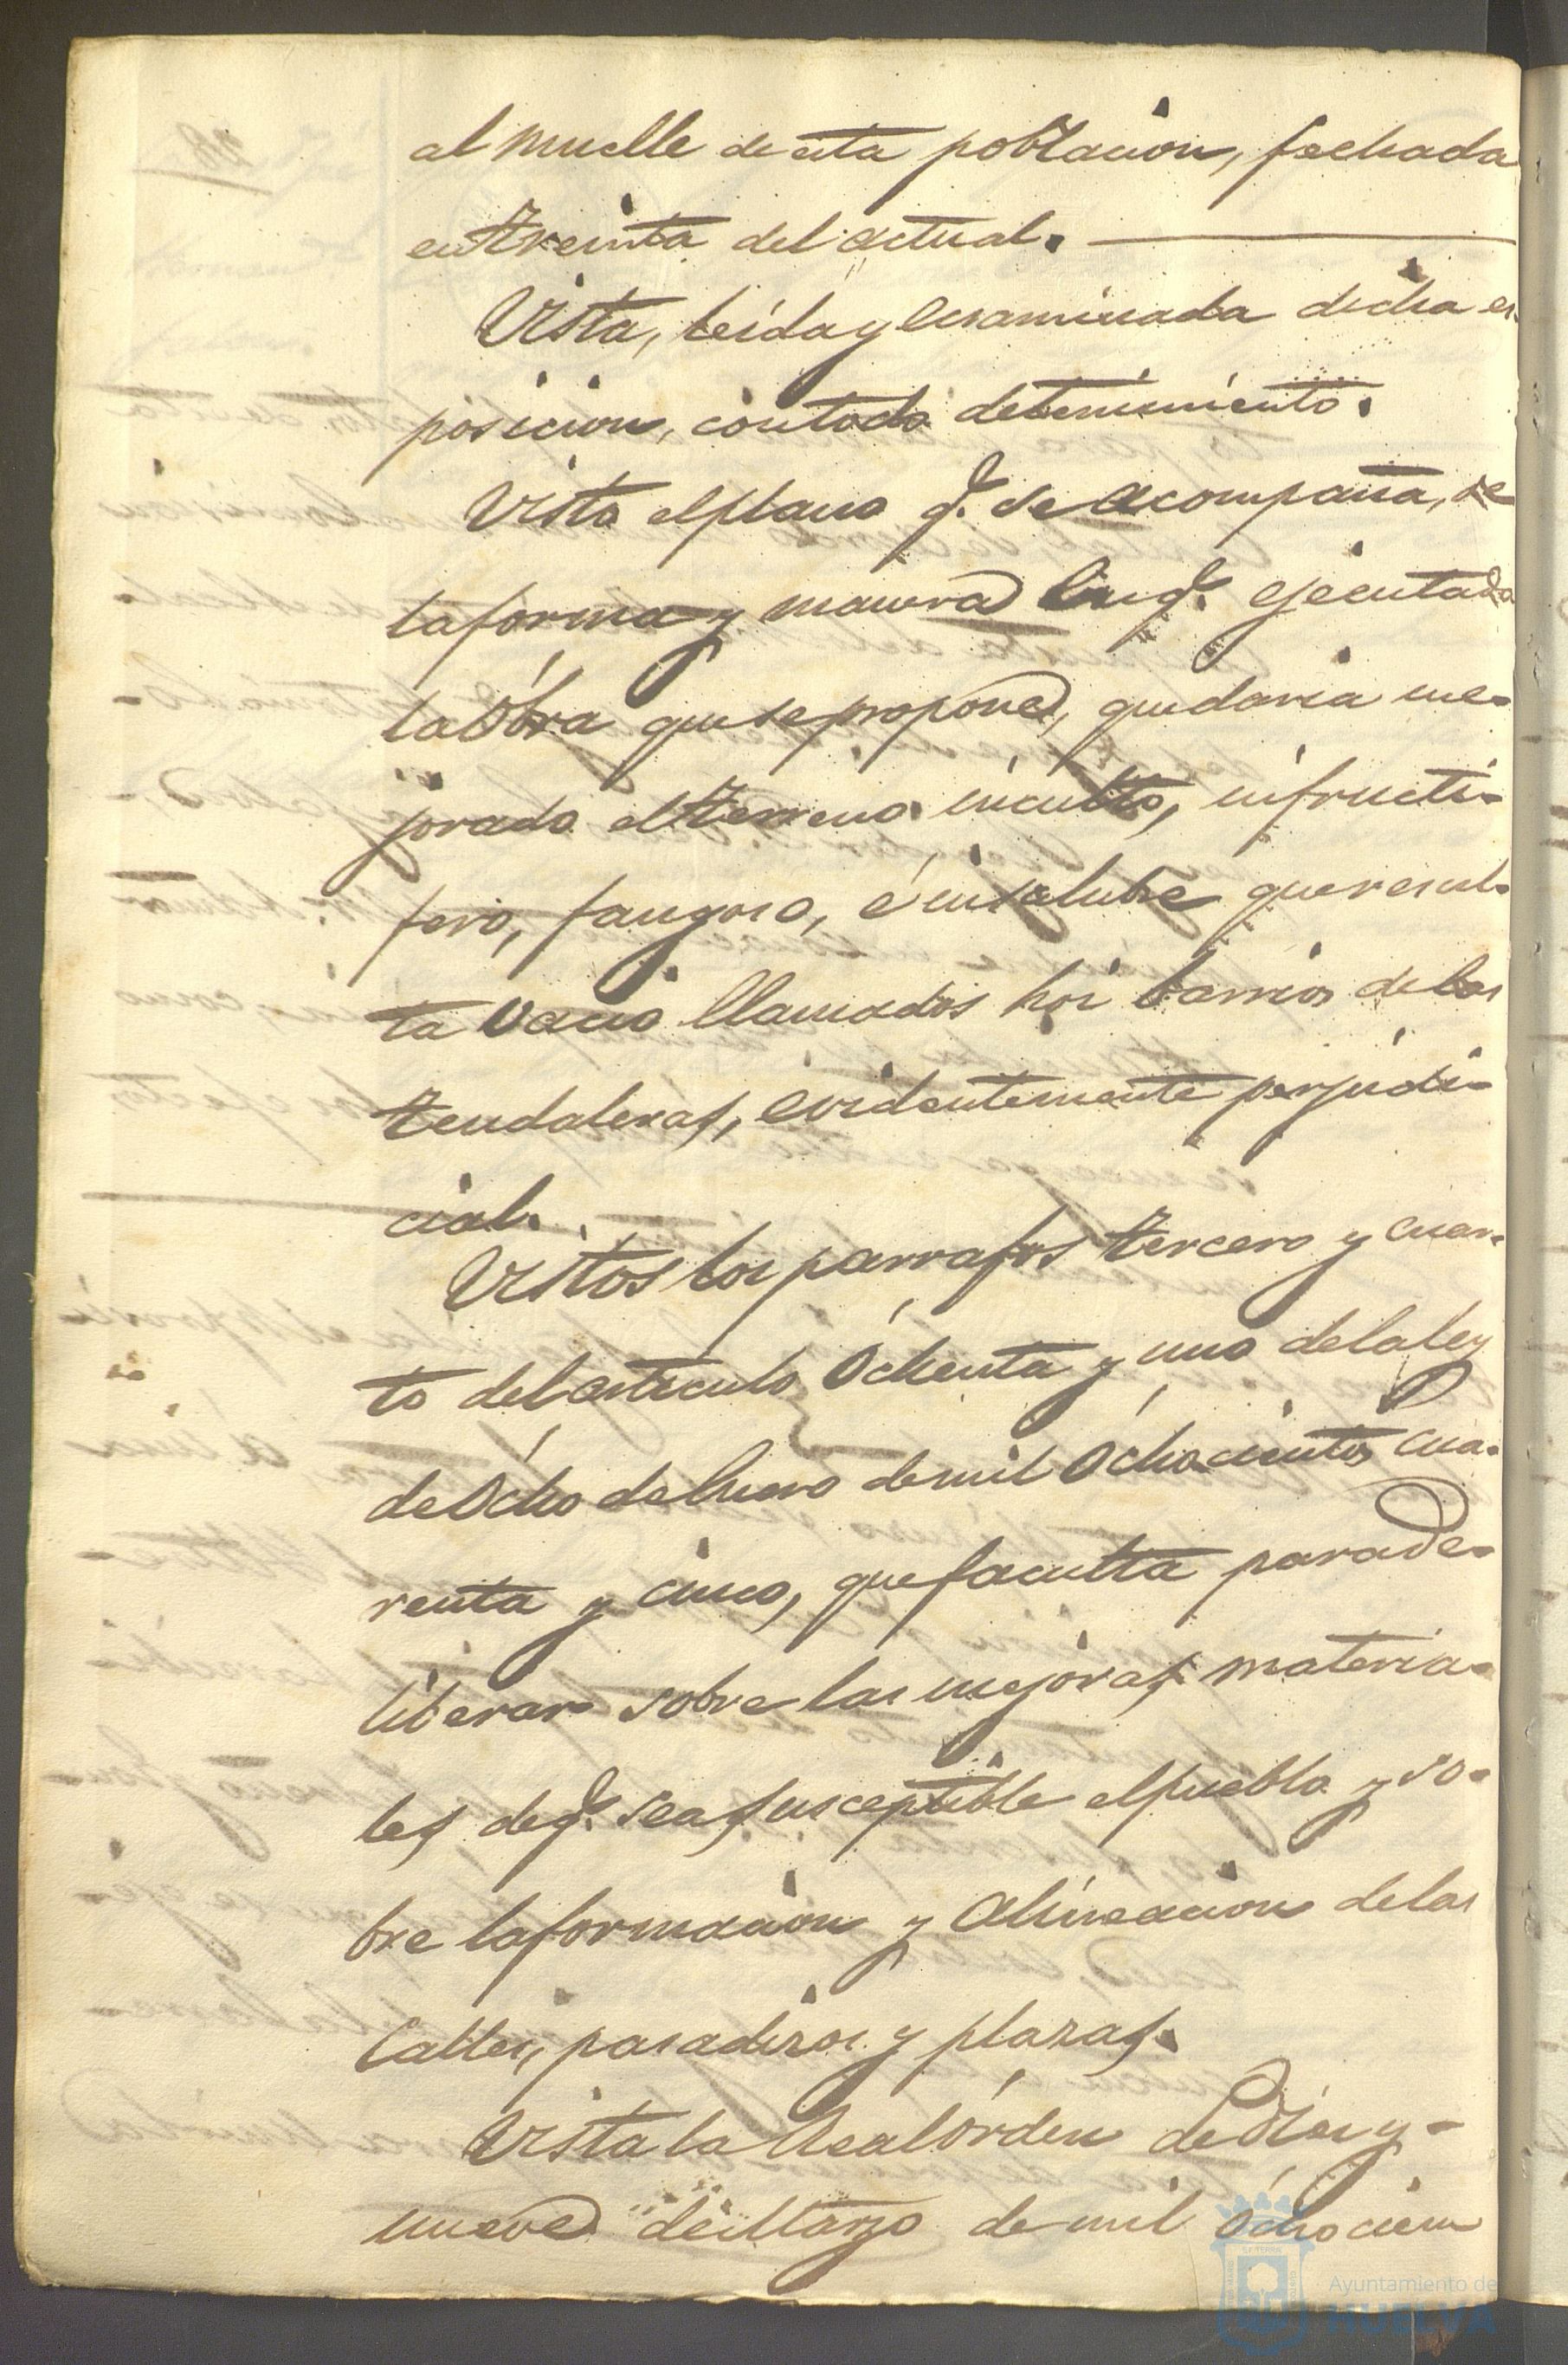 al muelle de esta poblacion, fechada
en treinta del actual. —
Vista, leida y ecsaminada dicha es-
posicion, con todo detenimiento.
Visto el plano q.e se acompaña, de
la forma y manera en q.e ejecutada
la Obra que se propone, quedaria me-
jorado el terreno inculto, infructi-
fero, fangoso, é insalubre que resul-
ta vacio llamados hoi barrios de las
tendaleras, evidentemente perjudi-
cial.
Vistos los parrafos tercero y cuar-
to del articulo Ochenta y uno de la ley
de Ocho de Enero de mil Ochocientos cua-
renta y cinco, que faculta para de-
liberar sobre las mejoras materia-
les de q.e sea susceptible el pueblo y so-
bre la formacion y alineacion de las
Calles, pasadizos y plazas.
Vista la Real órden de Diez y-
nueve de Marzo de mil Ochocien
Ayuntamiento de
HUELVA